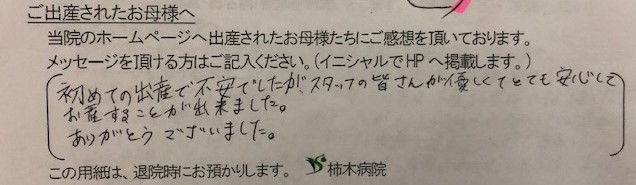 ご出産されたお母様へ
当院のホームページへ出産されたお母様たちにご感想を頂いております。
メッセージを頂ける方はご記入ください。(イニシャルでHPへ掲載します。)
初めての出産で不安でしたが、スタッフの皆さんが優しくてとても安心して
お産することが出来ました。
ありがとうございました。
この用紙は、退院時にお預かりします。 柿木病院